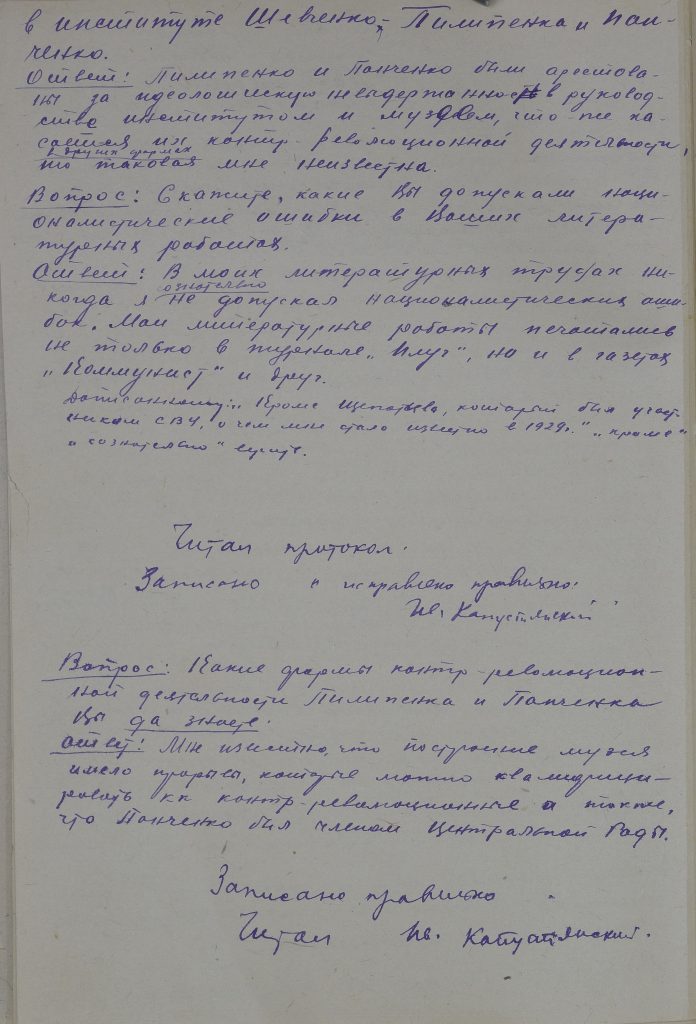 в институте Шевченко, – Пилипенка и Пан-
ченко.
Ответ: Пилипенко и Панченко были арестова-
ны за идеологическую невыдержанность в руковод-
стве институтом и музеем, что же ка-
сается их контр-революционной деятельности
в других формах
то таковая мне неизвестна.
Вопрос: Скажите, какие Вы допускали наци-
оналистические ошибки в Ваших литера-
турных работах.
Ответ: В моих литературных трудах ни-
сознательно
когда я не допускал националистических оши-
бок. Мои литературные работы печатались
не только в журнале „Плуг", но и в газетах
„Коммунист" и друг.
Дописанному: „Кроме Щепотьева, который был участ-
ником СВУ, о чем мне стало известно в 1929 г." „кроме"
и „сознательно" верить.
Читал протокол.
Записано и исправлено правильно.
Ив. Капустянский
Вопрос: Какие формы контр-революцион-
ной деятельности Пилипенка и Панченка
Вы да знаете.
Ответ: Мне известно, что построение музея
имело прорывы, которые можно квалифици-
ровать как контр-революционные а также,
что Панченко был членом Центральной Рады.
Записано правильно
Читал Ив. Капустянский.